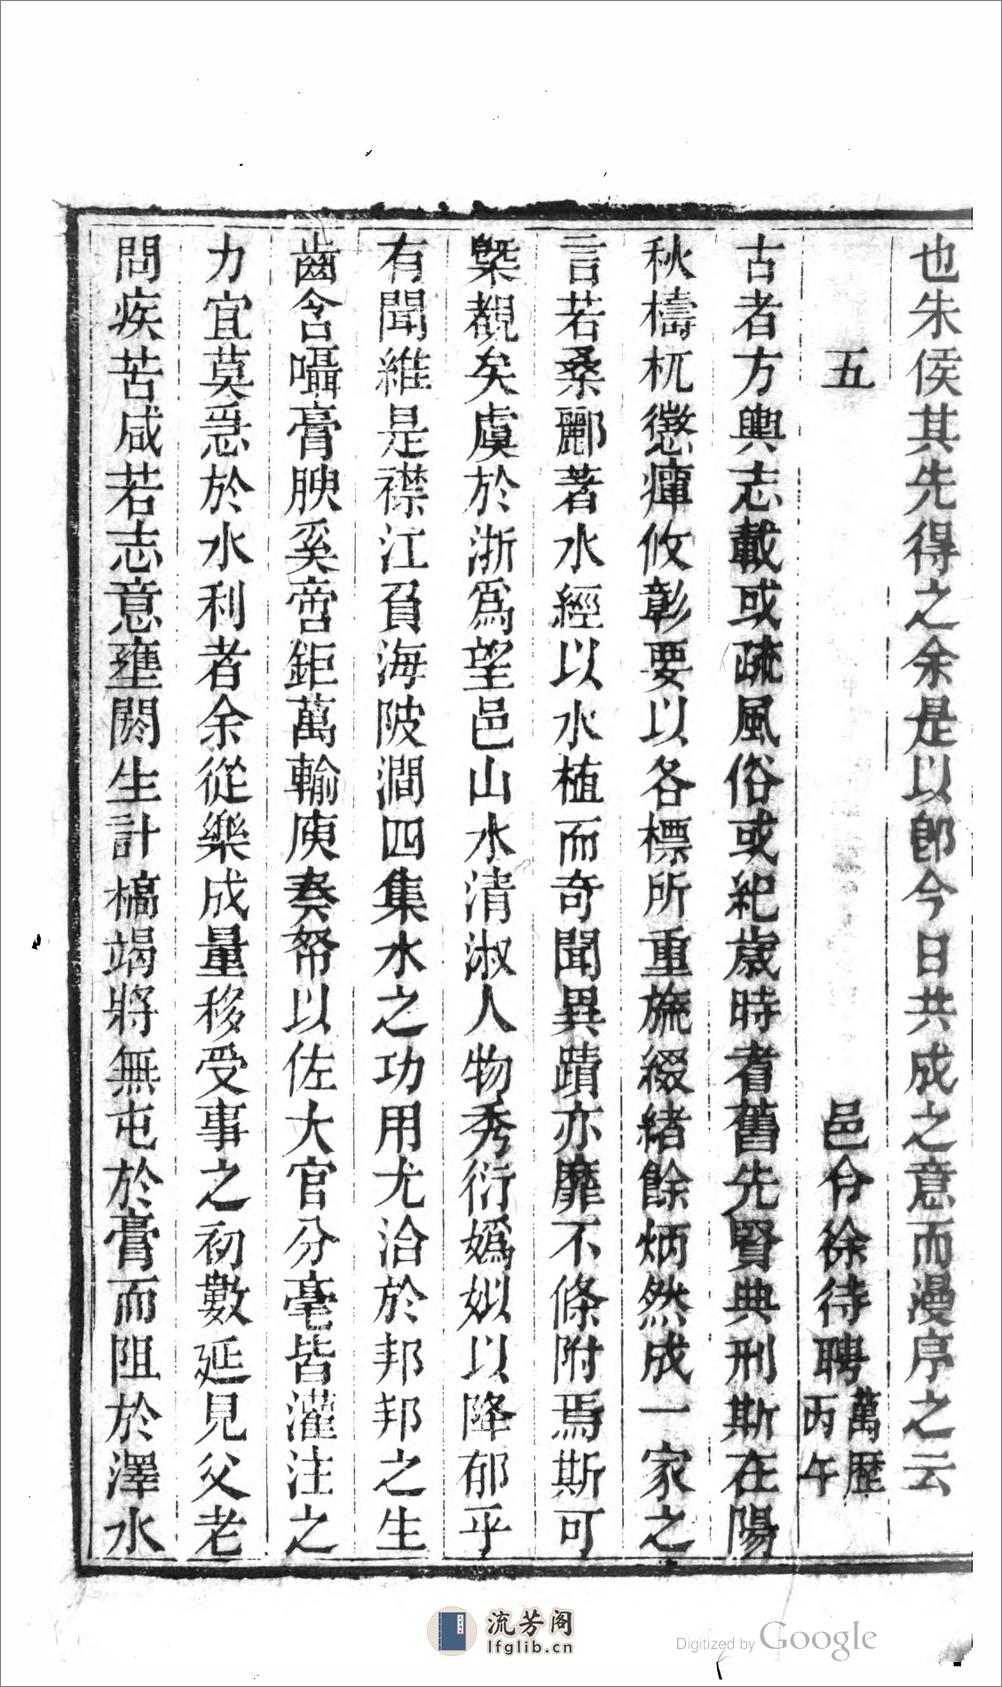 也朱侯其先得之余是以卽今日共成之意而漫序之云
五　邑令徐待聘萬歷丙午
古者方輿志載或疏風俗或紀歲時耆舊先賢典刑斯在陽
秋檮杌懲癉攸彰要以各標所重旒綴緒餘炳然成一家之
言若桑酈著水經以水植而奇聞異蹟亦靡不條附焉斯可
槩覩矣虞於浙爲望邑山水清淑人物秀衍嬀姒以降郁乎
有聞維是襟江負海陂澗四集水之功用尤洽於邦邦之生
齒含囁膏腴奚啻鉅萬輸庾奏帑以佐大官分毫皆灌注之
力宜莫急於水利者余從樂成量移受事之初數延見父老
問疾苦咸若志意壅閼生計槁竭將無屯於膏而阻於澤水
流芳阁
lfglib.cn
Digitized by Google